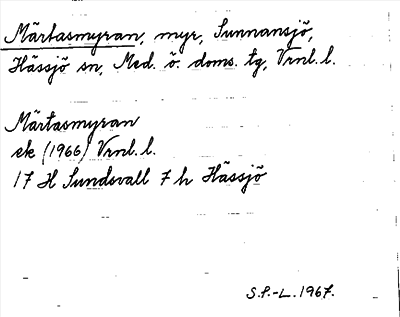 Märtasmyran, myr, Sunnansjö,
Hässjö sn, Med. ö. doms. tg, Vrnl. l.
Märtasmyran
ek (1966) Vrnl. l.
17 H Sundsvall 7 h Hässjö
S.P.-L. 1967.